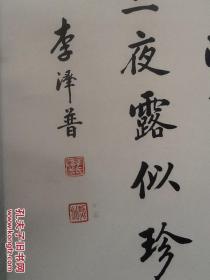 三夜露似珍
李泽普
孔夫子旧书网